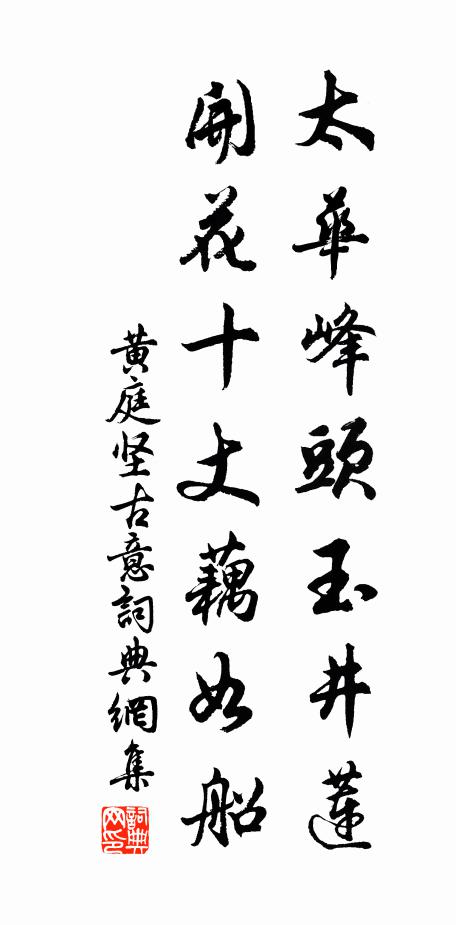 太華峰頭玉井蓮
開花十丈藕如船
黃庭坚古意詞典網集
詞典网印